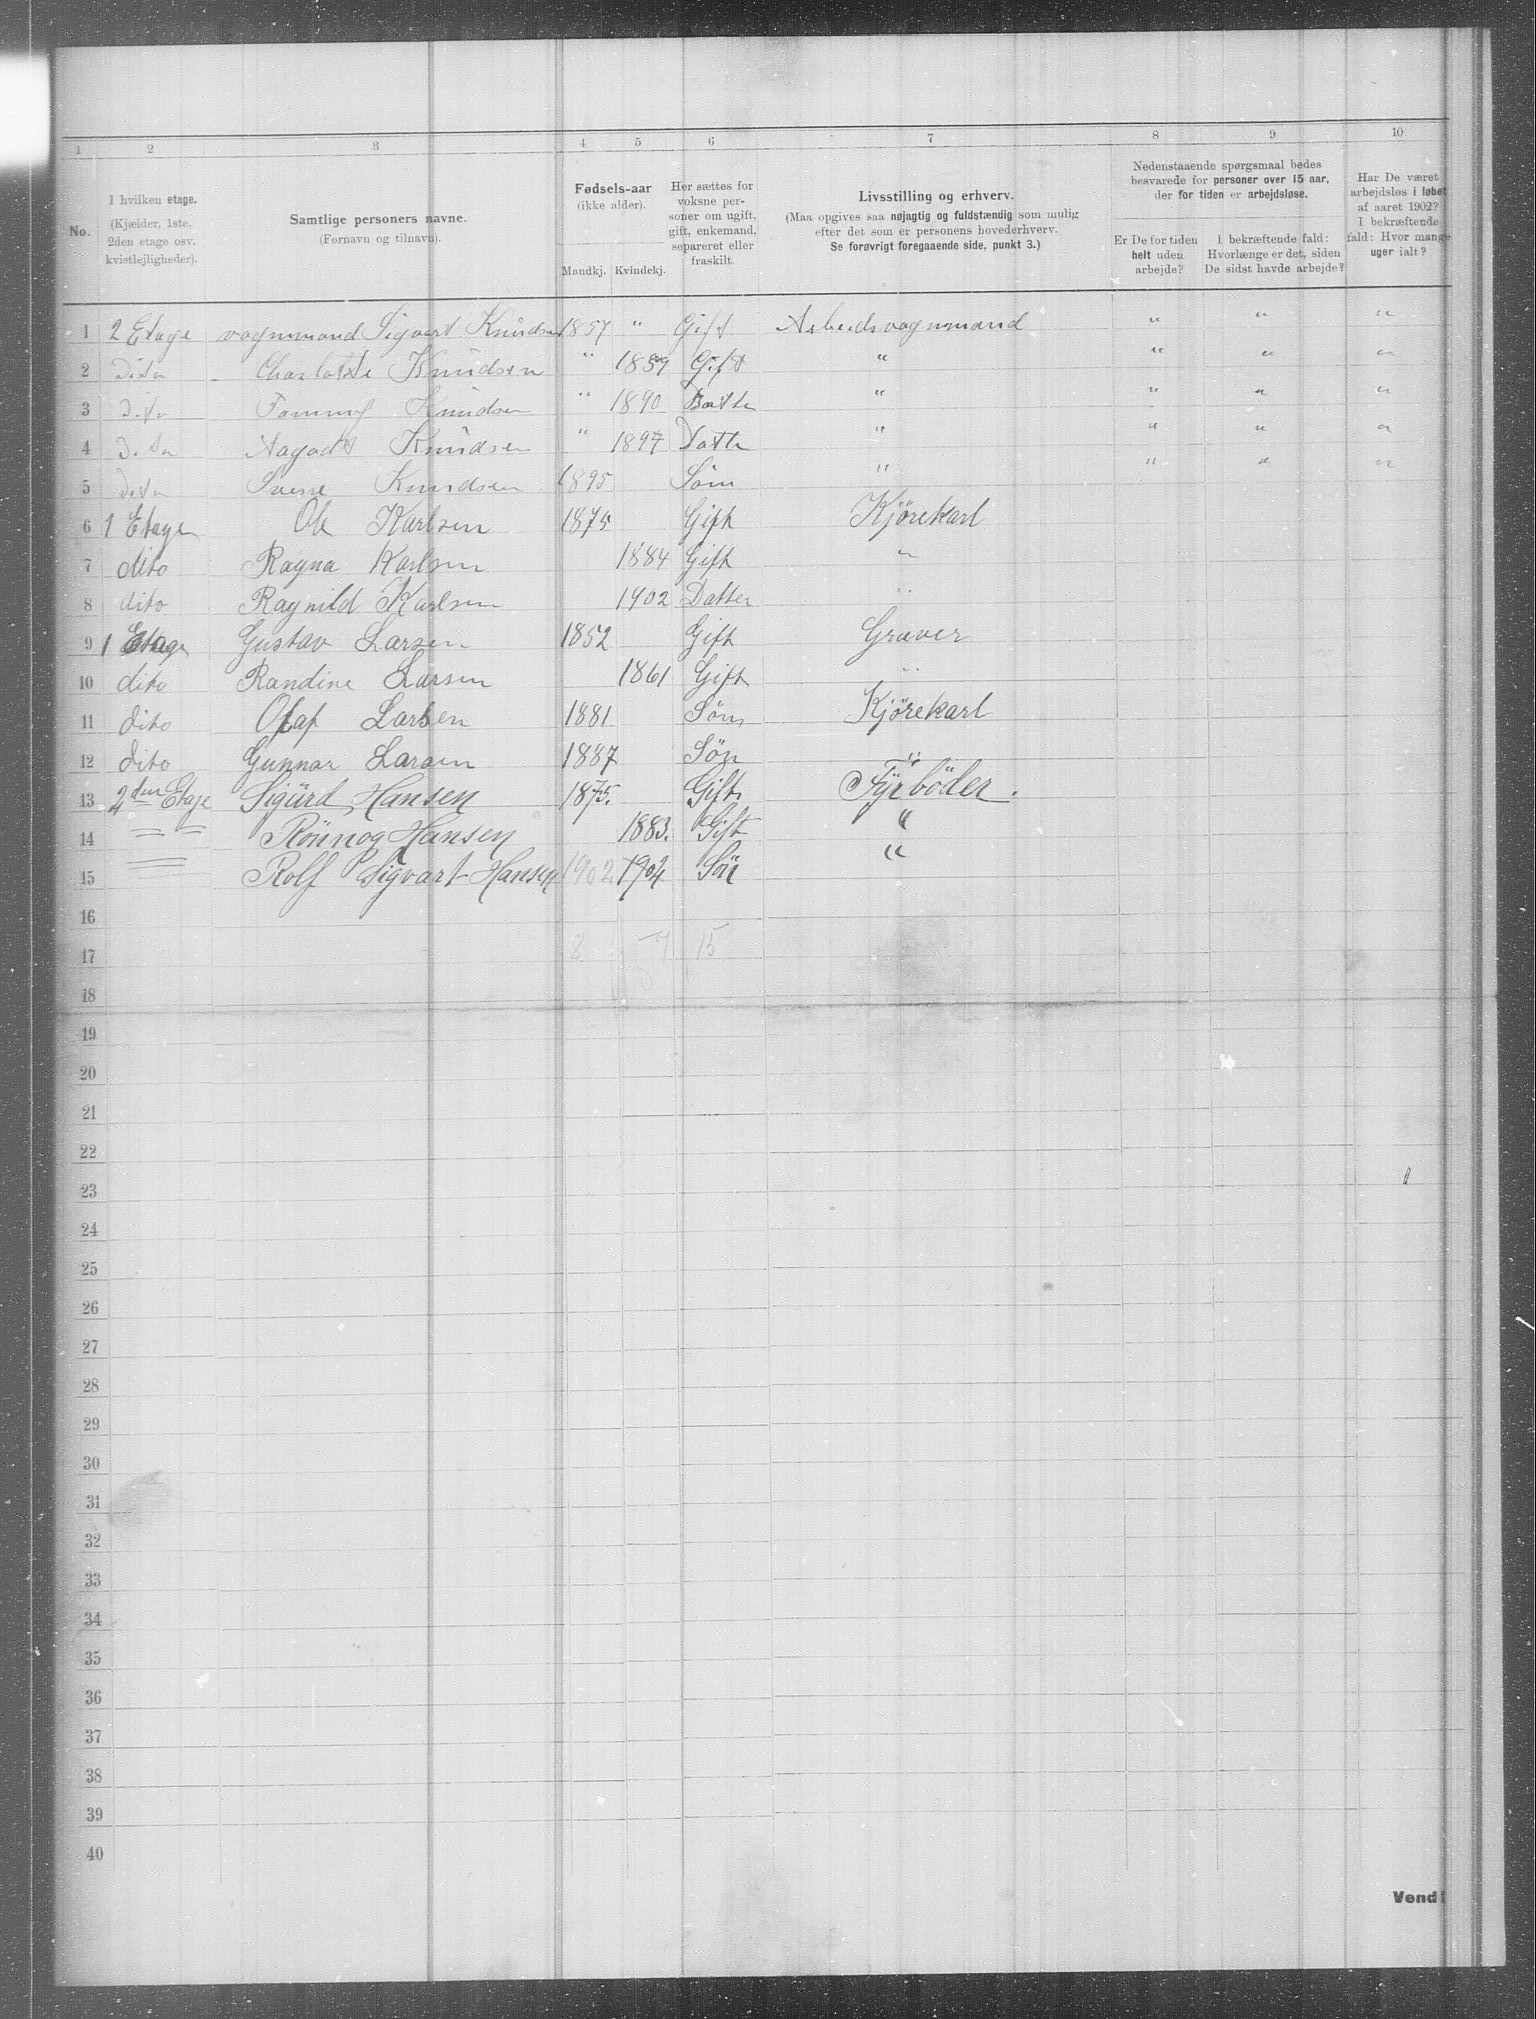 1 2 3 4 5 6 7 8 9 10
No.
I hvilken etage.
(Kjælder, 1ste,
2den etage osv.
kvistlejligheder).
Samtlige personers navne.
(Fornavn og tilnavn).
Fødsels-aar
(ikke alder).
Mandkj. Kvindekj.
Her sættes for
voksne per-
soner om ugift,
gift, enkemand,
separeret eller
fraskilt.
Livsstilling og erhverv.
(Maa opgives saa nøjagtig og fuldstændig som mulig
efter det som er personens hovederhverv.
Se forøvrigt foregaaende side, punkt 3.)
Nedenstaaende spørgsmaal bedes
besvarede for personer over 15 aar,
der for tiden er arbejdsløse.
Er De for tiden
helt uden
arbejde?
I bekræftende fald:
Hvorlænge er det, siden
De sidst havde arbejde?
Har De været
arbejdsløs i løbet
af aaret 1902?
I bekræftende
fald: Hvor mange
uger ialt?
1 2 Etage vognmand Sigvart Knudsen 1857 " Gift Arbeidsvognmand " " "
2 dito Charlotte Knudsen " 1859 Gift " " " "
3 dito Fanny Knudsen " 1890 Datte " " " "
4 dito Aagodt Knudsen " 1897 Datte " " " "
5 dito Knudsen 1895 Søn " " " "
6 1 Etage Ole Karlsen 1875 Gift Kjörekarl
7 dito Ragna Karlsen 1884 Gift "
8 dito Ragnild Karlsen 1902 Datter "
9 1 Etage Gustav Larsen 1852 Gift Graver
10 dito Randine Larsen 1861 Gift "
11 dito Olaf Larsen 1881 Søn Kjörekarl
12 dito Gunnar Larsen 1887 Søn "
13 2den Etaje Sigurd Hansen 1875. Gift. Fyrböder.
14 " " Rönnog Hansen 1883. Gift "
15 " Rolf Sigvart Hansen 1902 1902 Sön "
16
17 8 7 15
18
19
20
21
22
23
24
25
26
27
28
29
30
31
32
33
34
35
36
37
38
39
40
Vend!